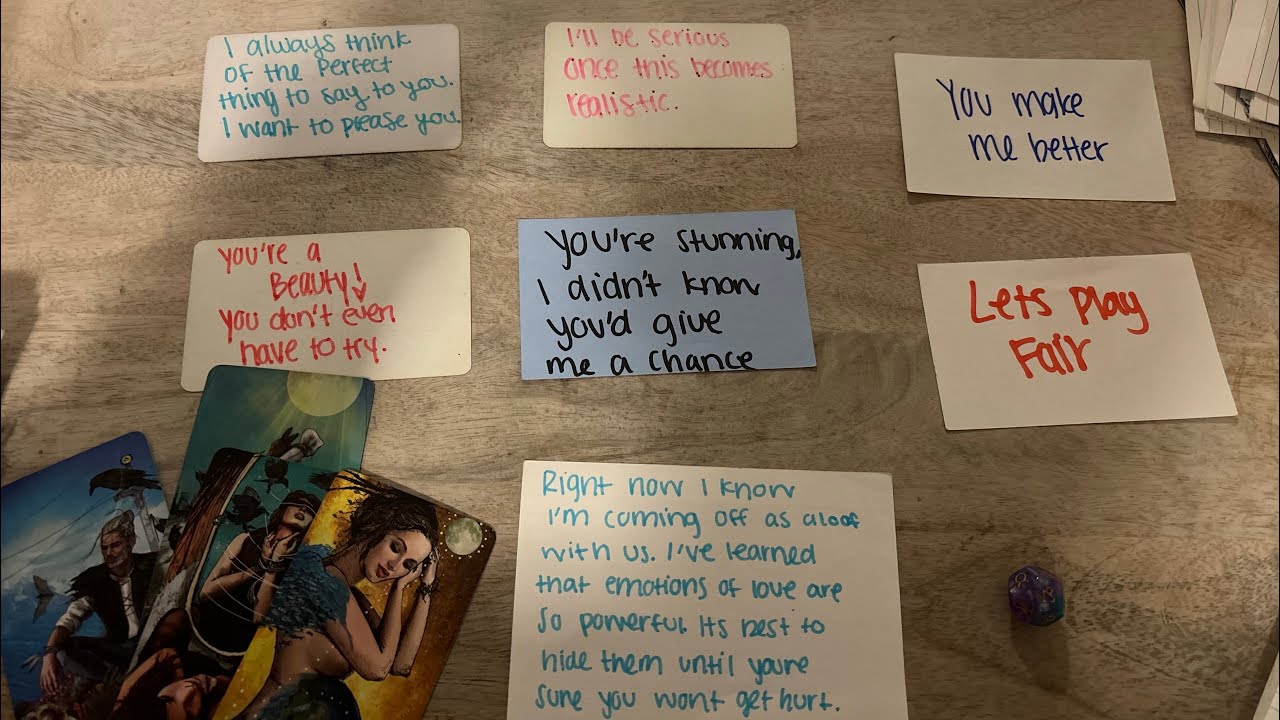 I always think
of the perfect
thing to say to you.
I want to please you.
I'll be serious
once this becomes
realistic.
You make
me better
you're a
Beauty!
you don't even
have to try.
you're stunning,
I didn't know
you'd give
me a chance
Lets play
Fair
Right now I know
I'm coming off as aloof
with us. I've learned
that emotions of love are
so powerful. Its best to
hide them until youre
sure you wont get hurt.